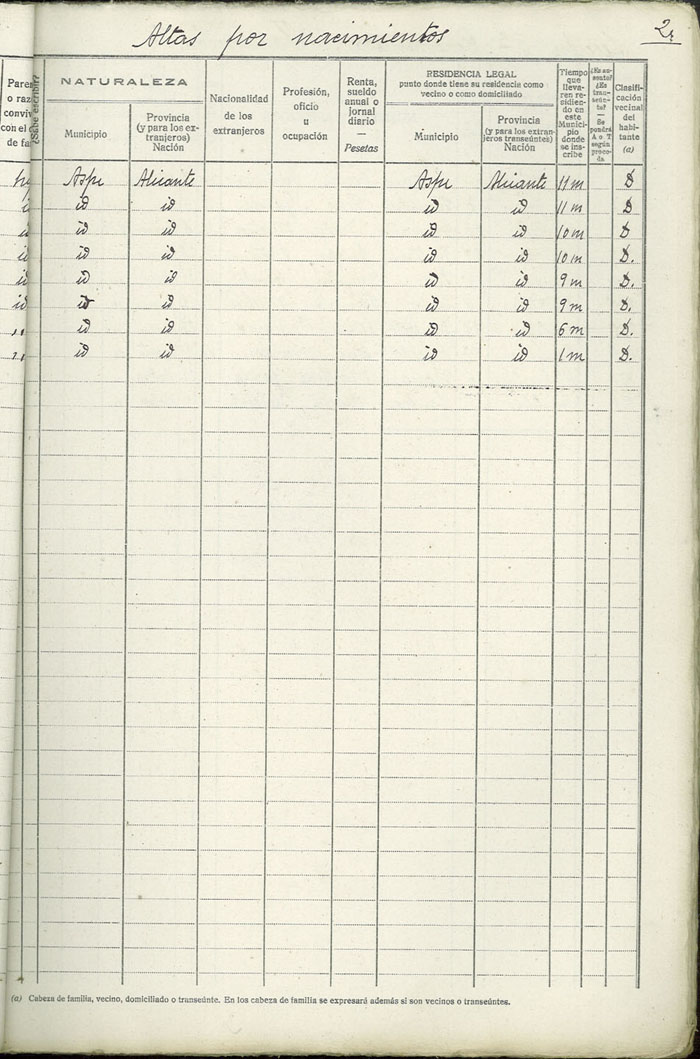 Altas por nacimientos
2
Pare
o raz
conviv
con el
de fa
¿Sabe escribir?
NATURALEZA
Municipio
Provincia
(y para los ex-
tranjeros)
Nación
Nacionalidad
de los
extranjeros
Profesión,
oficio
u
ocupación
Renta,
sueldo
anual o
jornal
diario
—
Pesetas
RESIDENCIA LEGAL
punto donde tiene su residencia como
vecino o como domiciliado
Municipio
Provincia
(y para los extran-
jeros transeúntes)
Nación
Tiempo
que
lleva-
ren re-
sidien-
do en
este
Munici-
pio
donde
se ins-
cribe
¿Es au-
sente?
¿Es
tran-
seún-
te?
—
Se
pondrá
A o T
según
proce-
da
Clasifi-
cación
vecinal
del
habi-
tante
(a)
Aspe Alicante Aspe Alicante 11 m D
id id id id 11 m D
id id id id 10 m D
id id id id 10 m D.
id id id id 9 m D.
id id id id 9 m D.
id id id id 6 m D.
id id id id 1 m D.
(a) Cabeza de familia, vecino, domiciliado o transeúnte. En los cabeza de familia se expresará además si son vecinos o transeúntes.